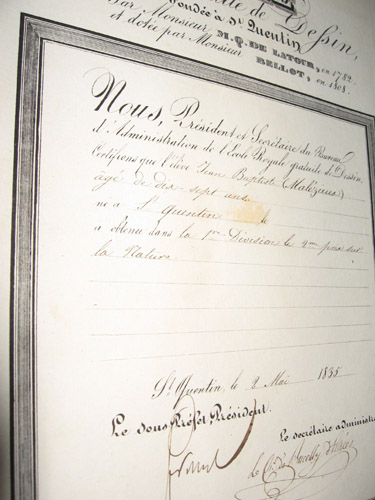 de Dessin,
Fondée à St. Quentin
Par Monsieur M. Q. DE LATOUR, en 1782.
et dotée par Monsieur BELLOT, en 1808.
Nous, Président et Secrétaire du Bureau
d'Administration de l'Ecole Royale gratuite de Dessin,
Certifions que l'élève Jean Baptiste Malézieux
âgé de dix sept ans
né à St Quentin
a obtenu dans la 1re Division le 2me prix sur
la Nature
St. Quentin, le 2 Mai 1835
Le sous Préfet, Président.
Le secrétaire administ